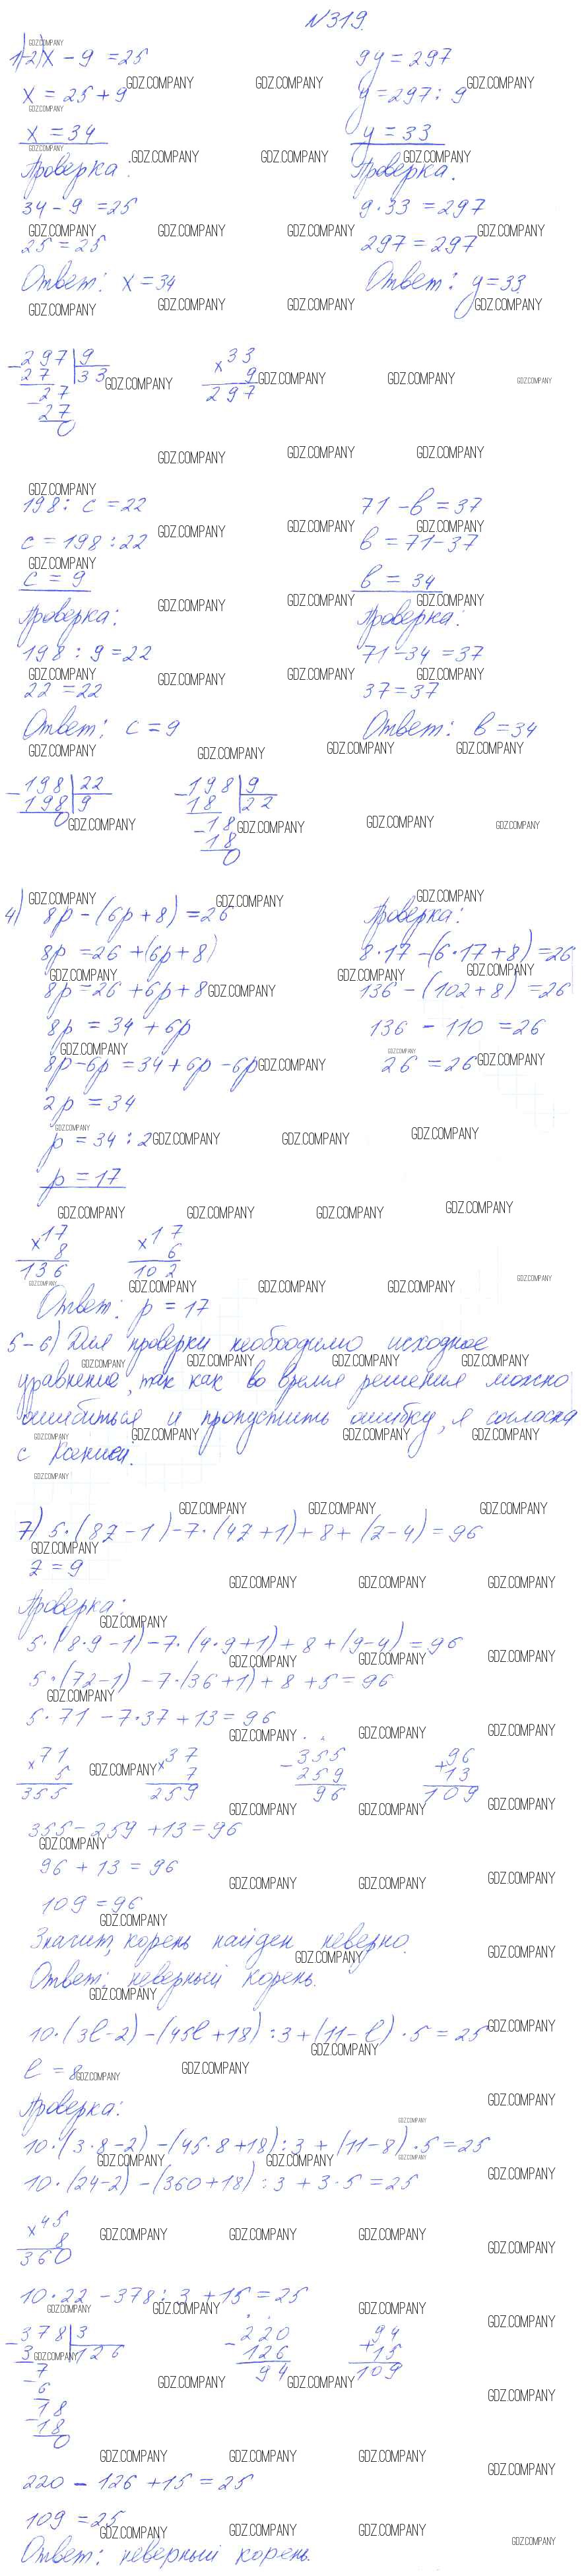 №319.
1)-2) x - 9 = 25
9y = 297
x = 25 + 9
y = 297 : 9
x = 34
y = 33
Проверка.
Проверка.
34 - 9 = 25
9 · 33 = 297
25 = 25
297 = 297
Ответ: x = 34
Ответ: y = 33
- 297 | 9
27 | 33
- 27
27
0
33
x 9
297
198 : c = 22
71 - в = 37
c = 198 : 22
в = 71 - 37
c = 9
в = 34
Проверка:
Проверка:
198 : 9 = 22
71 - 34 = 37
22 = 22
37 = 37
Ответ: c = 9
Ответ: в = 34
- 198 | 22
198 | 9
0
- 198 | 9
18 | 22
- 18
18
0
4) 8p - (6p + 8) = 26
8p = 26 + (6p + 8)
8p = 26 + 6p + 8
8p = 34 + 6p
8p - 6p = 34 + 6p - 6p
2p = 34
p = 34 : 2
p = 17
Проверка:
8 · 17 - (6 · 17 + 8) = 26
136 - (102 + 8) = 26
136 - 110 = 26
26 = 26
17
x 8
136
17
x 6
102
Ответ: p = 17
5-6) Для проверки необходимо исходное
уравнение, так как во время решения можно
ошибиться и пропустить ошибку, я согласна
с Ксенией.
7) 5 · (8z - 1) - 7 · (4z + 1) + 8 + (z - 4) = 96
z = 9
Проверка:
5 · (8 · 9 - 1) - 7 · (4 · 9 + 1) + 8 + (9 - 4) = 96
5 · (72 - 1) - 7 · (36 + 1) + 8 + 5 = 96
5 · 71 - 7 · 37 + 13 = 96
71
x 5
355
37
x 7
259
- 355
259
96
96
+ 13
109
355 - 259 + 13 = 96
96 + 13 = 96
109 = 96
Значит, корень найден неверно.
Ответ: неверный корень.
10 · (3l - 2) - (45l + 18) : 3 + (11 - l) · 5 = 25
l = 8
Проверка:
10 · (3 · 8 - 2) - (45 · 8 + 18) : 3 + (11 - 8) · 5 = 25
10 · (24 - 2) - (360 + 18) : 3 + 3 · 5 = 25
45
x 8
360
10 · 22 - 378 : 3 + 15 = 25
- 378 | 3
3 | 126
7
- 6
18
- 18
0
- 220
126
94
94
+ 15
109
220 - 126 + 15 = 25
109 = 25
Ответ: неверный корень.
GDZ.COMPANY